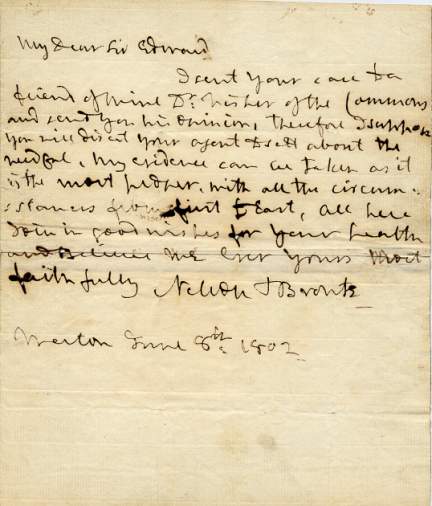 My Dear Sir Edward
I sent your case to a
friend of mine Dr. Fisher of the Commons
and send you his opinion, therefore I suppose
you will direct your agent to set about the
needful, my evidence can be taken as it
is the most proper, with all the circum-
stances from first to last, All here
Join in good wishes for your health
and Believe me Ever yours Most
faithfully Nelson & Bronte
Merton June 8th: 1802